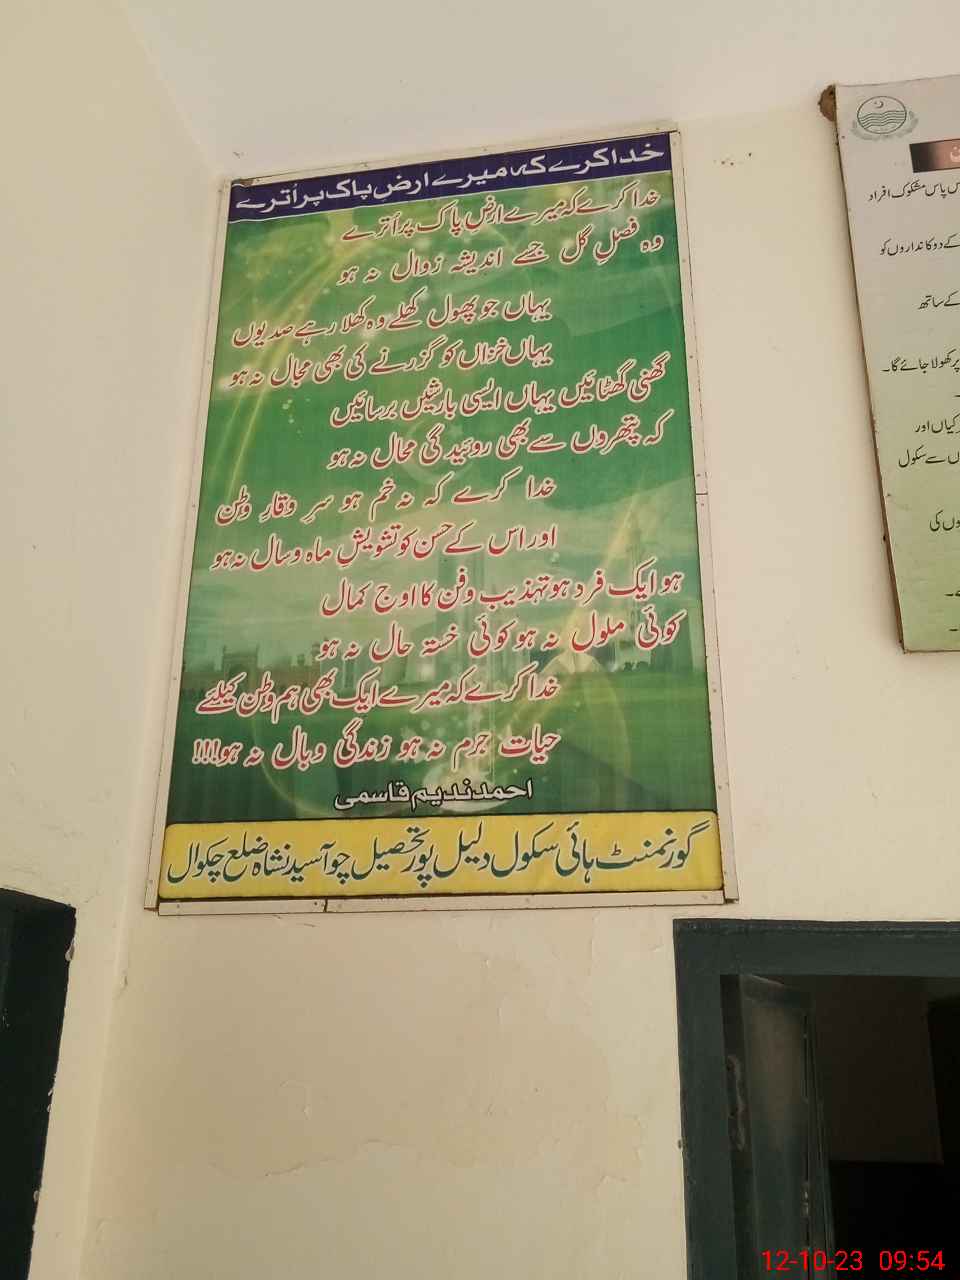 خدا کرے کہ میرے ارضِ پاک پر اُترے
خدا کرے کہ میرے ارضِ پاک پر اُترے
وہ فصلِ گل جسے اندیشہ زوال نہ ہو
یہاں جو پھول کھلے وہ کھلا رہے صدیوں
یہاں خزاں کو گزرنے کی بھی مجال نہ ہو
گھنی گھٹائیں یہاں ایسی بارشیں برسائیں
کہ پتھروں سے بھی روئیدگی محال نہ ہو
خدا کرے کہ نہ خم ہو سرِ وقارِ وطن
اور اس کے حسن کو تشویشِ ماہ و سال نہ ہو
ہو ایک فرد ہو تہذیب و فن کا اوج کمال
کوئی ملول نہ ہو کوئی خستہ حال نہ ہو
خدا کرے کہ میرے ایک بھی ہم وطن کیلئے
حیات جرم نہ ہو زندگی وبال نہ ہو!!!
احمد ندیم قاسمی
گورنمنٹ ہائی سکول دلیل پور تحصیل چوآسیدنشاہ ضلع چکوال
س پاس مشکوک افراد
کے دوکانداروں کو
کے ساتھ
پر کھولا جائے گا۔
کیاں اور
سے سکول
کی
12-10-23 09:54